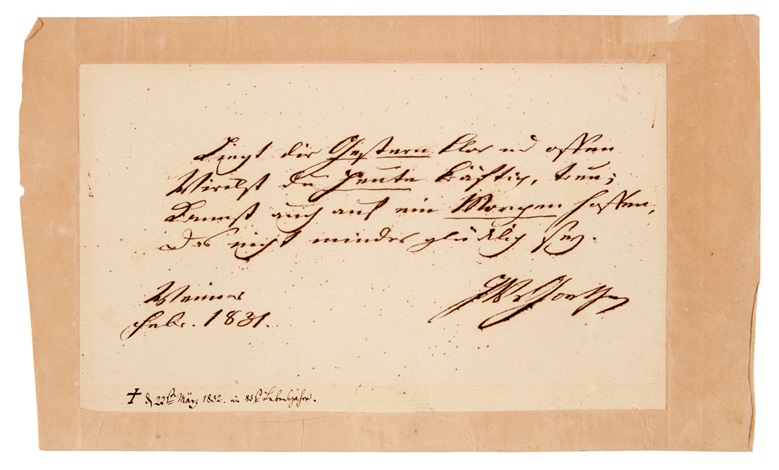 Liegt dir Gestern klar und offen
Wirckst du Heute kräftig, treu;
Kannst auch auf ein Morgen hoffen,
Das nicht minder glücklich sey.
Weimar
Febr. 1831.
JWvGoethe
† d 22ten März 1832. im 83ten Lebensjahre.